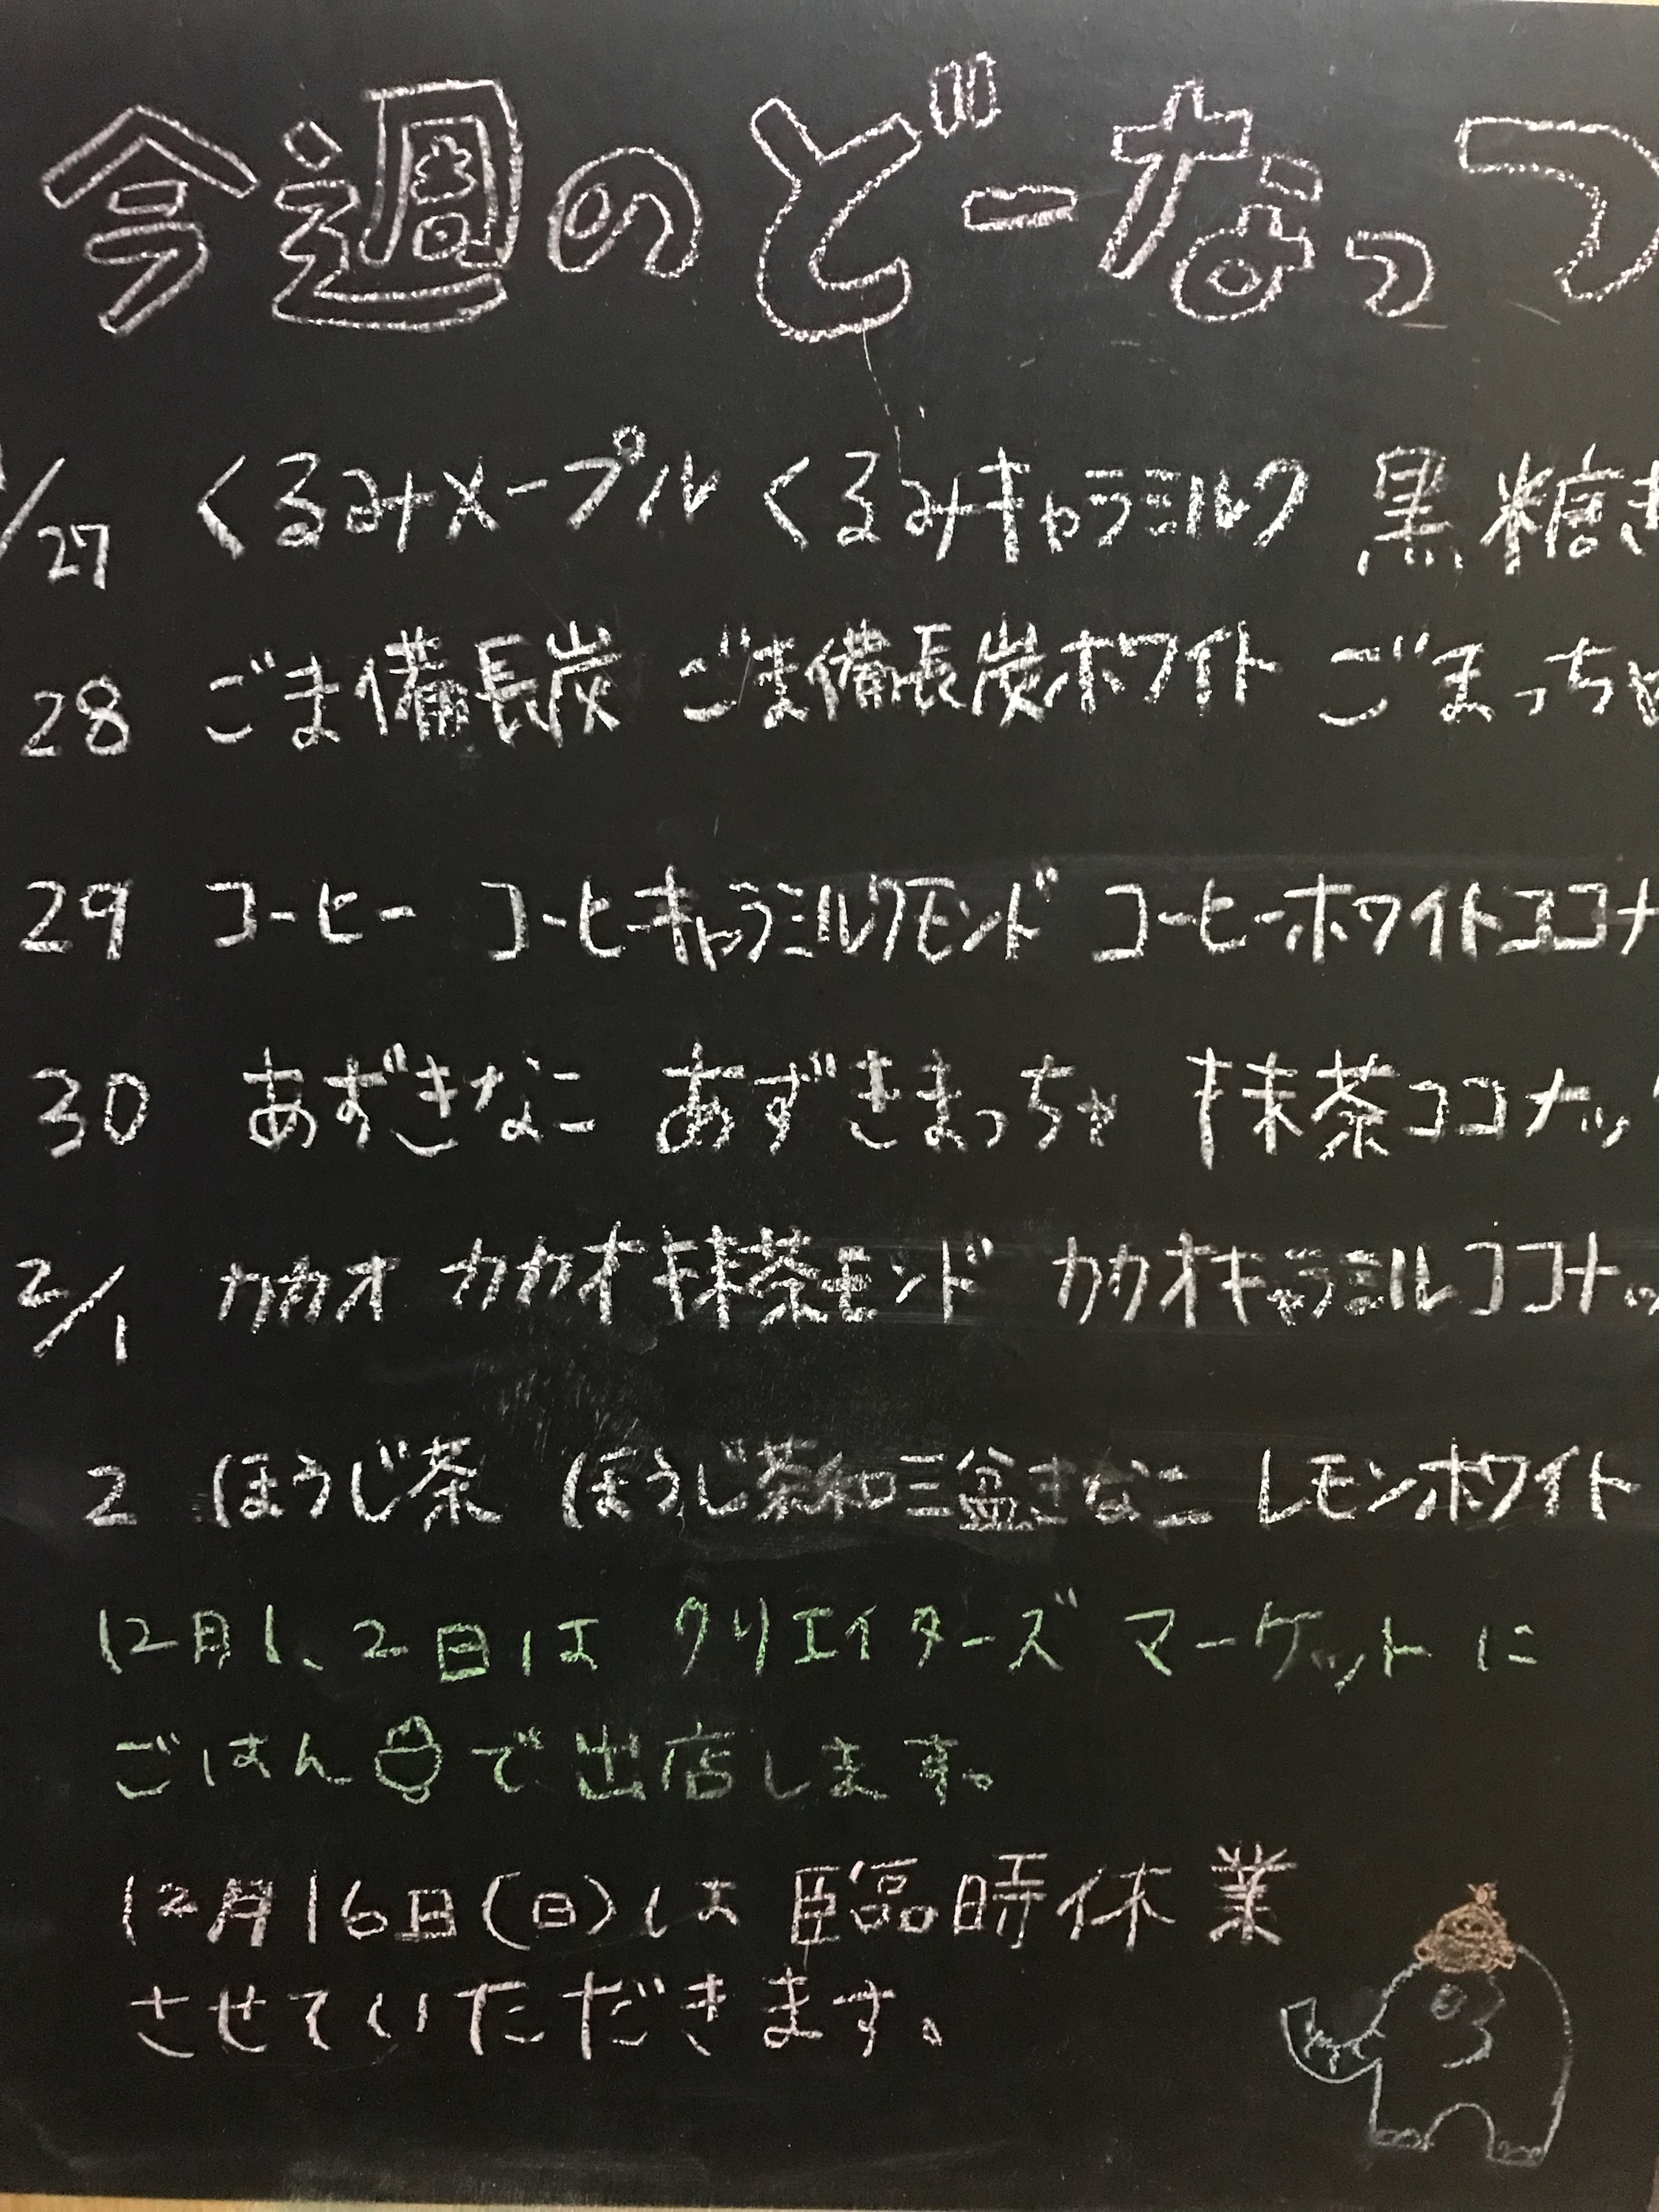 今週のどーなっつ
/27 くるみメープル くるみキャラミルク 黒糖き
28 ごま備長炭 ごま備長炭ホワイト ごまっちゃ
29 コーヒー コーヒーキャラミルクアモンド コーヒーホワイトココナ
30 あずきなこ あずきまっちゃ 抹茶ココナッ
2/1 カカオ カカオ抹茶モンド カカオキャラミルココナッ
2 ほうじ茶 ほうじ茶和三盆きなこ レモンホワイト
12月1、2日は クリエイターズ マーケットに
ごはんで出店します。
12月16日(日)は 臨時休業
させていただきます。